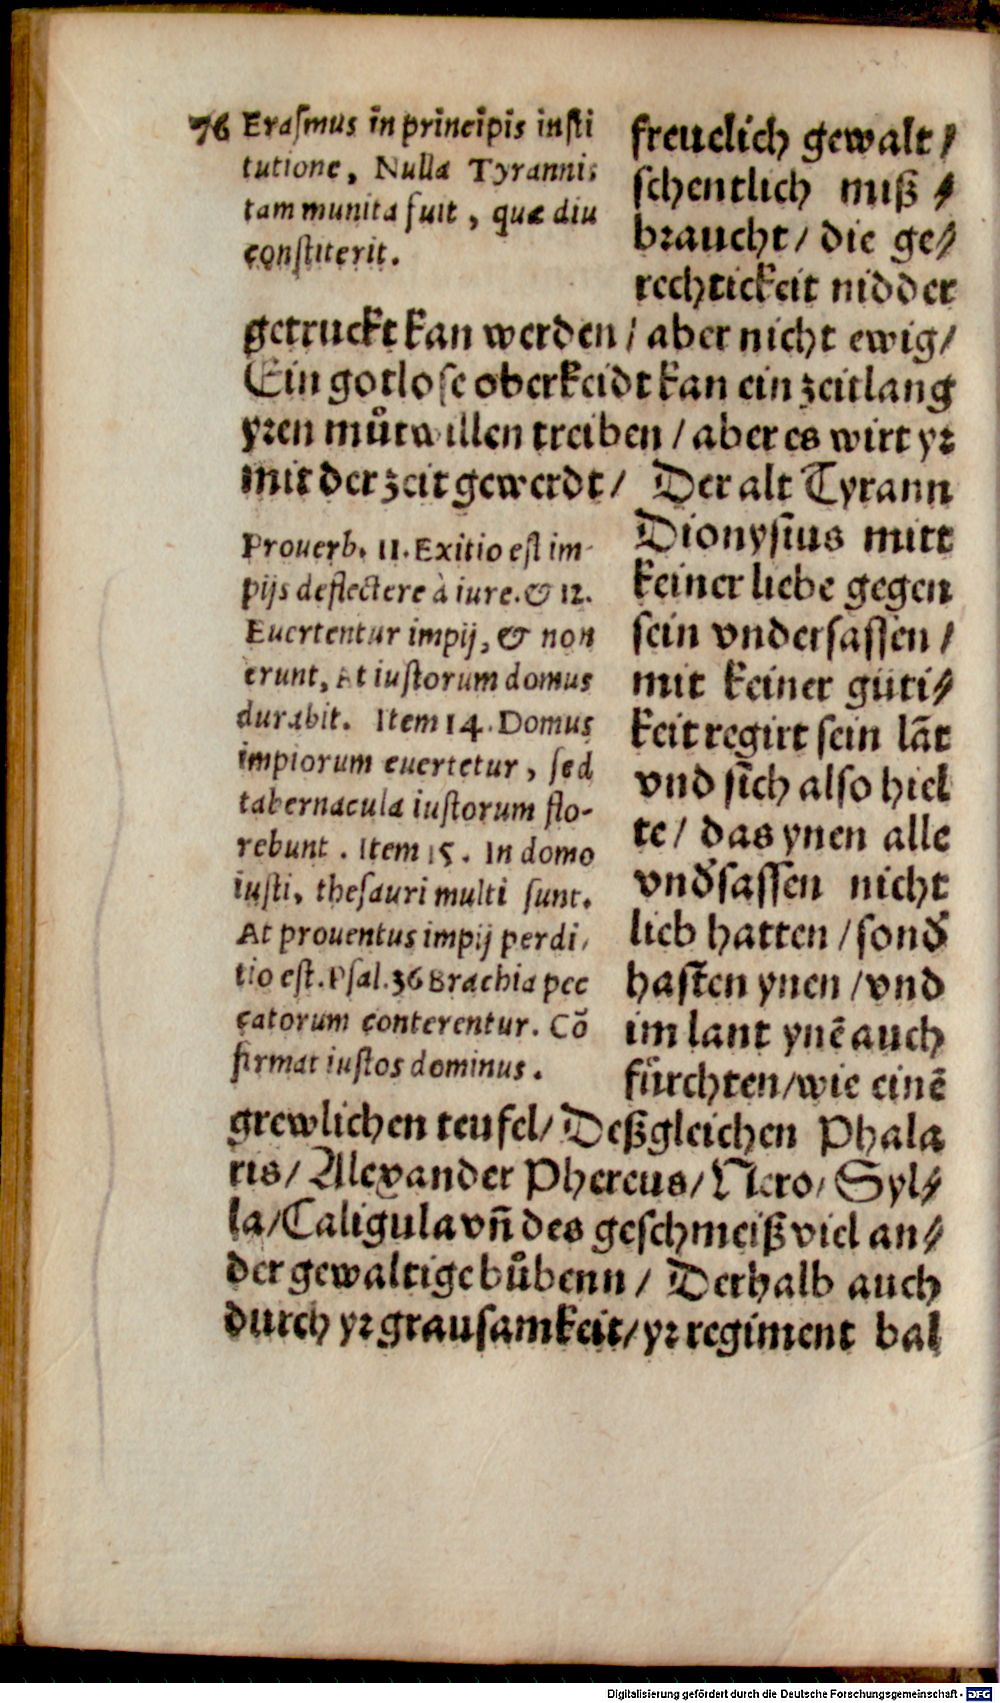 76 Erasmus in principis insti
tutione, Nulla Tyrannis
tam munita fuit, quæ diu
constiterit.
freuelich gewalt /
schentlich miß⸗
braucht / die ge⸗
rechtickeit nidder
getruckt kan werden / aber nicht ewig /
Ein gotlose oberkeidt kan ein zeitlang
yren můtwillen treiben / aber es wirt yr
mit der zeit gewerdt / Der alt Tyrann
Prouerb. 11. Exitio est im-
pijs deflectere à iure. & 12.
Euertentur impij, & non
erunt, At iustorum domus
durabit. Item 14. Domus
impiorum euertetur, sed
tabernacula iustorum flo-
rebunt. Item 15. In domo
iusti, thesauri multi sunt.
At prouentus impij perdi,
tio est. Psal. 36 Brachia pec
catorum conterentur. Cō
firmat iustos dominus.
Dionysius mitt
keiner liebe gegen
sein vndersassen /
mit keiner güti⸗
keit regirt sein lāt
vnd sich also hiel
te / das ynen alle
vnd̕sassen nicht
lieb hatten / sond̕
hasten ynen / vnd
im lant ynē auch
fürchten / wie einē
grewlichen teufel / Deßgleichen Phala
ris / Alexander Phereus / Nero / Syl⸗
la / Caligula vn̄ des geschmeiß viel an⸗
der gewaltige bůbenn / Derhalb auch
durch yr grausamkeit / yr regiment bal
Digitalisierung gefördert durch die Deutsche Forschungsgemeinschaft - DFG